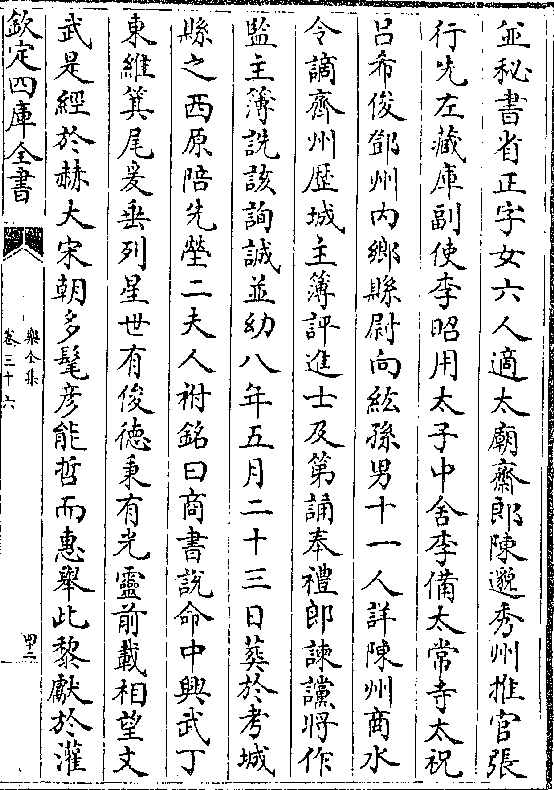 並秘書省正字女六人適太廟齋郎陳邈秀州推官張
行先左藏庫副使李昭用太子中舍李備太常寺太祝
呂希俊鄧州内鄉縣尉向紘孫男十一人詳陳州商水
令謫齊州歴城主簿評進士及第誦奉禮郎諫讜將作
監主簿詵該詢誠並幼八年五月二十三日葬於考城
縣之西原陪先塋二夫人祔銘曰商書說命中興武丁
東維箕尾爰垂列星世有俊德秉有光靈前載相望文
武是經於赫大宋朝多髦彦能哲而惠舉此黎獻於灌
欽定四庫全書
樂全集
卷三十六
甲二